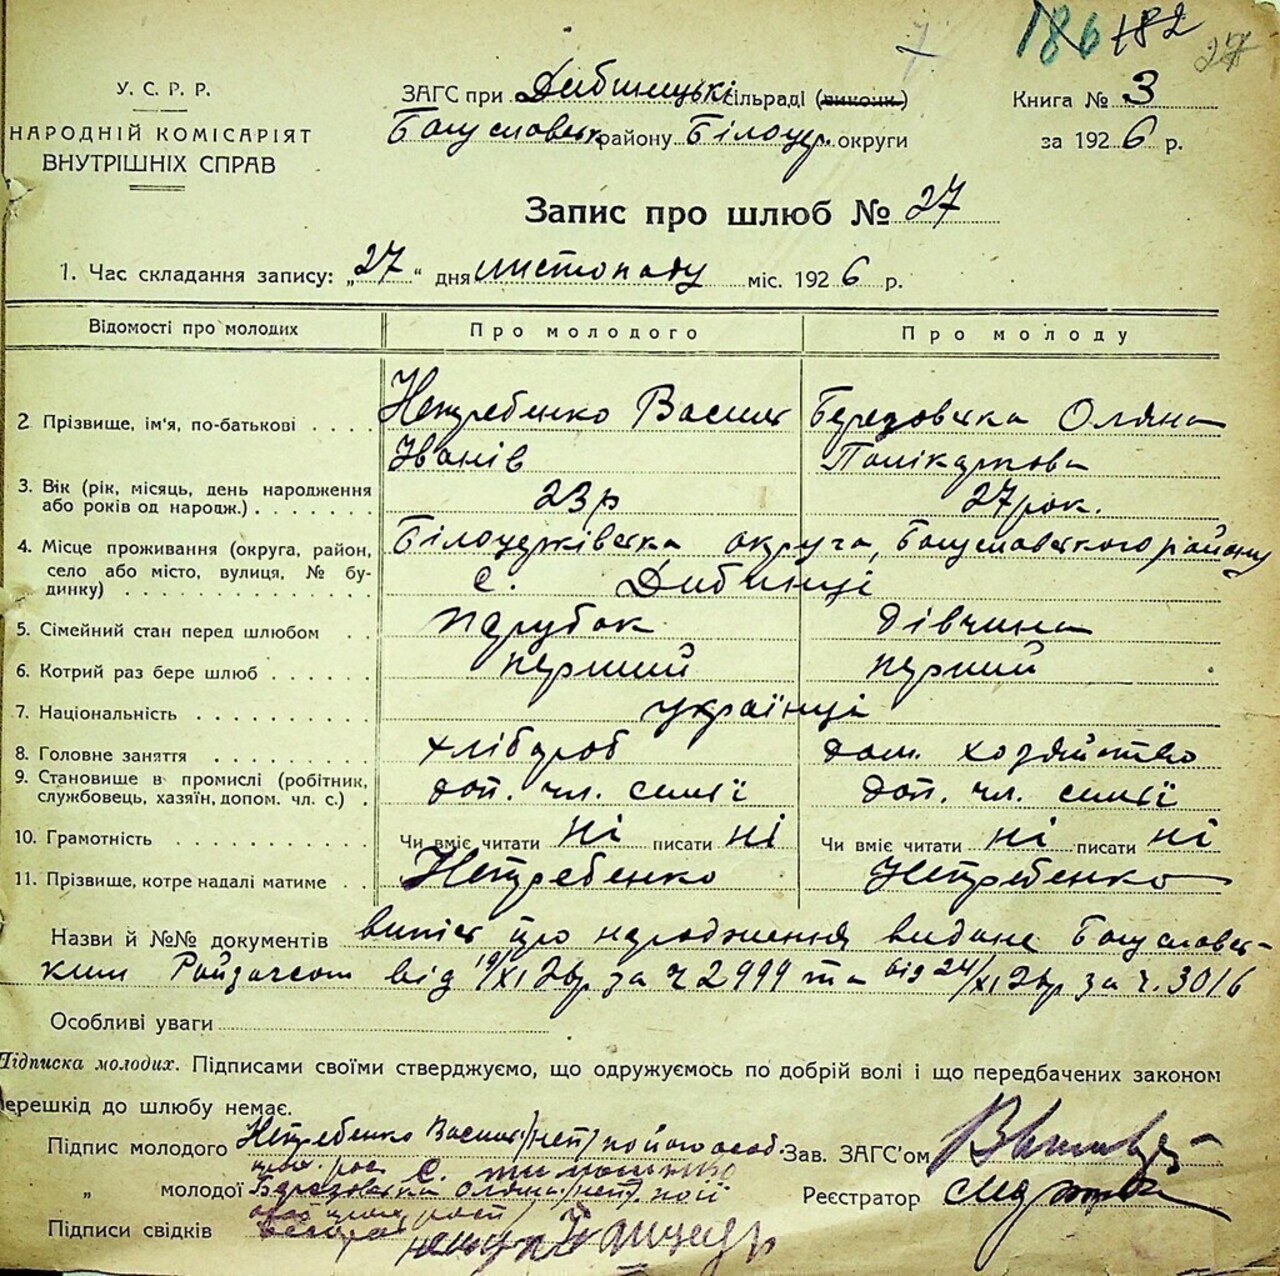 186 182 27
У. С. Р. Р.
НАРОДНІЙ КОМІСАРІЯТ
ВНУТРІШНІХ СПРАВ
ЗАГС при Дибинецькі сільраді (виконк.)
Богуславськ району Білоцер. округи
Книга № 3
за 1926 р.
Запис про шлюб № 27
1. Час складання запису: „27“ дня листопаду міс. 1926 р.
Відомості про молодих Про молодого Про молоду
2 Прізвище, ім'я, по-батькові . . . . Нетребенко Василь Березовська Оляна
Іванів Полікарпова
3. Вік (рік, місяць, день народження 23 р 27 рок.
або років од народж.) . . . . . . .
4. Місце проживання (округа, район, Білоцерківська округа, Богуславського району
село або місто, вулиця, № бу- с. Дибинці
динку) . . . . . . . . . . . . . .
5. Сімейний стан перед шлюбом . . парубок дівчина
6. Котрий раз бере шлюб . . . . . . перший перший
7. Національність . . . . . . . . . українці
8. Головне заняття . . . . . . . . хлібороб дом. хозяйство
9. Становище в промислі (робітник, доп. чл. семії доп. чл. семії
службовець, хазяїн, допом. чл. с.) .
10. Грамотність . . . . . . . . . . Чи вміє читати ні писати ні Чи вміє читати ні писати ні
11. Прізвище, котре надалі матиме . . Нетребенко Нетребенко
Назви й №№ документів випис про народження видане Богуславсь-
ким Райзагсом від 19/XI 26р за ч 2999 та від 24/XI 26р за ч. 3016
Особливі уваги
Підписка молодих. Підписами своїми стверджуємо, що одружуємось по добрій волі і що передбачених законом
перешкід до шлюбу немає.
Підпис молодого Нетребенко Василь /неп/ по його особ. Зав. ЗАГС'ом
прох. рос С. Тимошенко
„ молодої Березовська Оляна /неп/ по її Реєстратор
особ прох рост
Підписи свідків